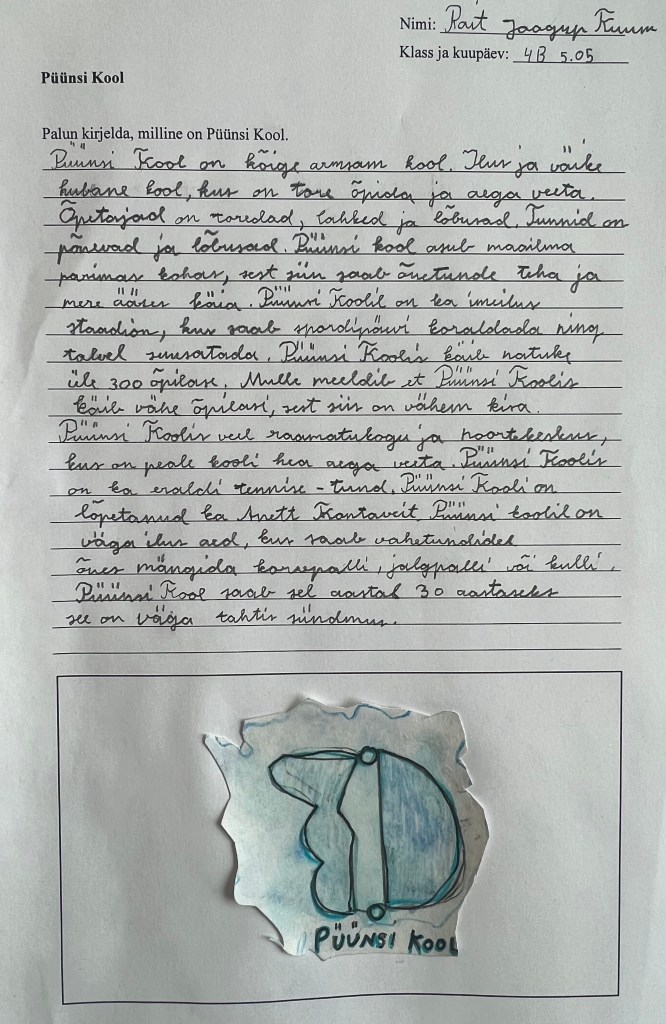 Nimi: Rait Jaagup Kuum
Klass ja kuupäev: 4B 5.05
Püünsi Kool
Palun kirjelda, milline on Püünsi Kool.
Püünsi Kool on kõige armsam kool. Ilus ja väike
kubane kool, kus on tore õpida ja aega veeta.
Õpetajad on toredad, lahked ja lõbusad. Tunnid on
põnevad ja lõbusad. Püünsi kool asub maailma
parimas kohas, sest siin saab õuetunde teha ja
mere ääres käia. Püünsi Koolil on ka imeilus
staadion, kus saab spordipäevi koraldada ning
talvel suusatada. Püünsi Koolis käib natuke
üle 300 õpilase. Mulle meeldib et Püünsi Koolis
käib vähe õpilasi, sest siis on vähem kisa.
Püünsi Koolis veel raamatukogu ja noortekeskus,
kus on peale kooli hea aega veeta. Püünsi Koolis
on ka eraldi tennise-tund. Püünsi Kooli on
lõpetanud ka Anett Kontaveit. Püünsi koolil on
väga ilus aed, kus saab vahetundidel
õues mängida korvpalli, jalgpalli või kulli.
Püünsi Kool saab sel aastal 30 aastaseks
see on väga tähtis sündmus.
PÜÜNSI KOOL